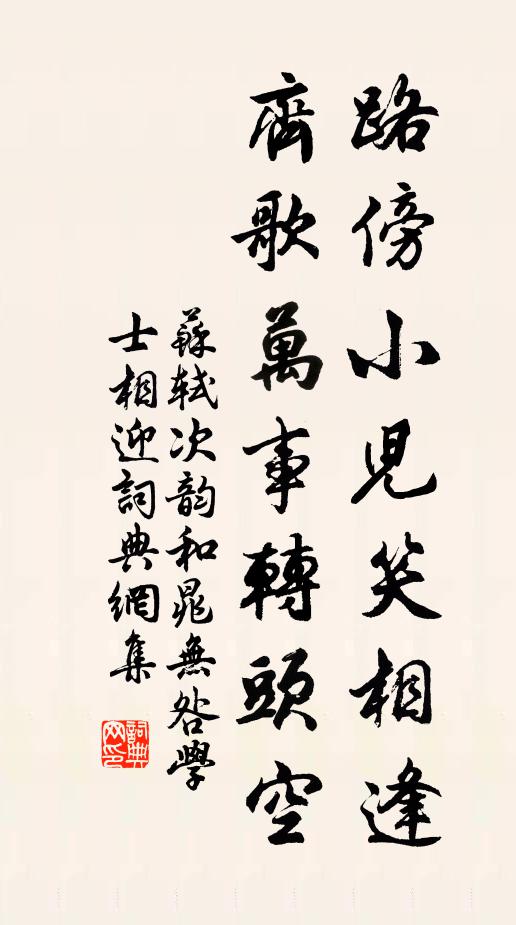 路傍小兒笑相逢
齊歌萬事轉頭空
蘇軾次韵和晁無咎學
士相迎詞典網集
詞典
网印